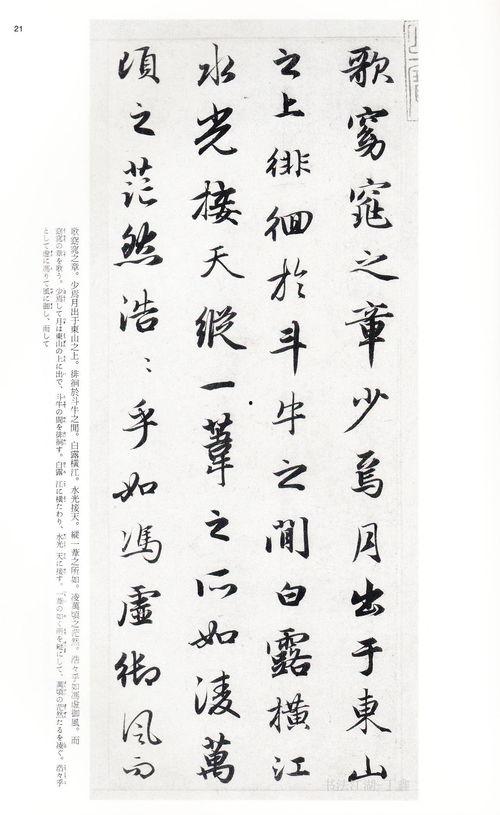 21
歌窈窕之章少焉月出于東山
之上徘徊於斗牛之間白露橫江
水光接天縱一葦之所如淩萬
頃之茫然浩〻乎如馮虛御風而
歌窈窕之章。少焉月出于東山之上。徘徊於斗牛之間。白露橫江。水光接天。縱一葦之所如。凌萬頃之茫然。浩々乎如馮虛御風。而
窈窕の章を歌う。少焉して月は東山の上に出で、斗牛の間を徘徊す。白露 江に横たわり、水光 天に接す。一葦の如く所を縦にして、萬頃の茫然たるを凌ぐ。浩々乎
として虚に馮りて風に御し、而して
书法江湖